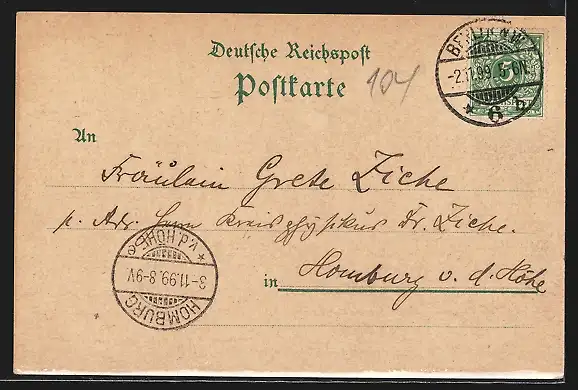 Deutsche Reichspost
Postkarte
104
BERLIN N.W.
-2.11.99. 5-6N.
* 6 b
5
An
Fräulein Grete Ziehe
p. Adr. Herrn Kreisphysikus Dr. Ziehe.
in Homburg v. d. Höhe
* v.d. HÖHE
3-11.99.8-9V.
HOMBURG